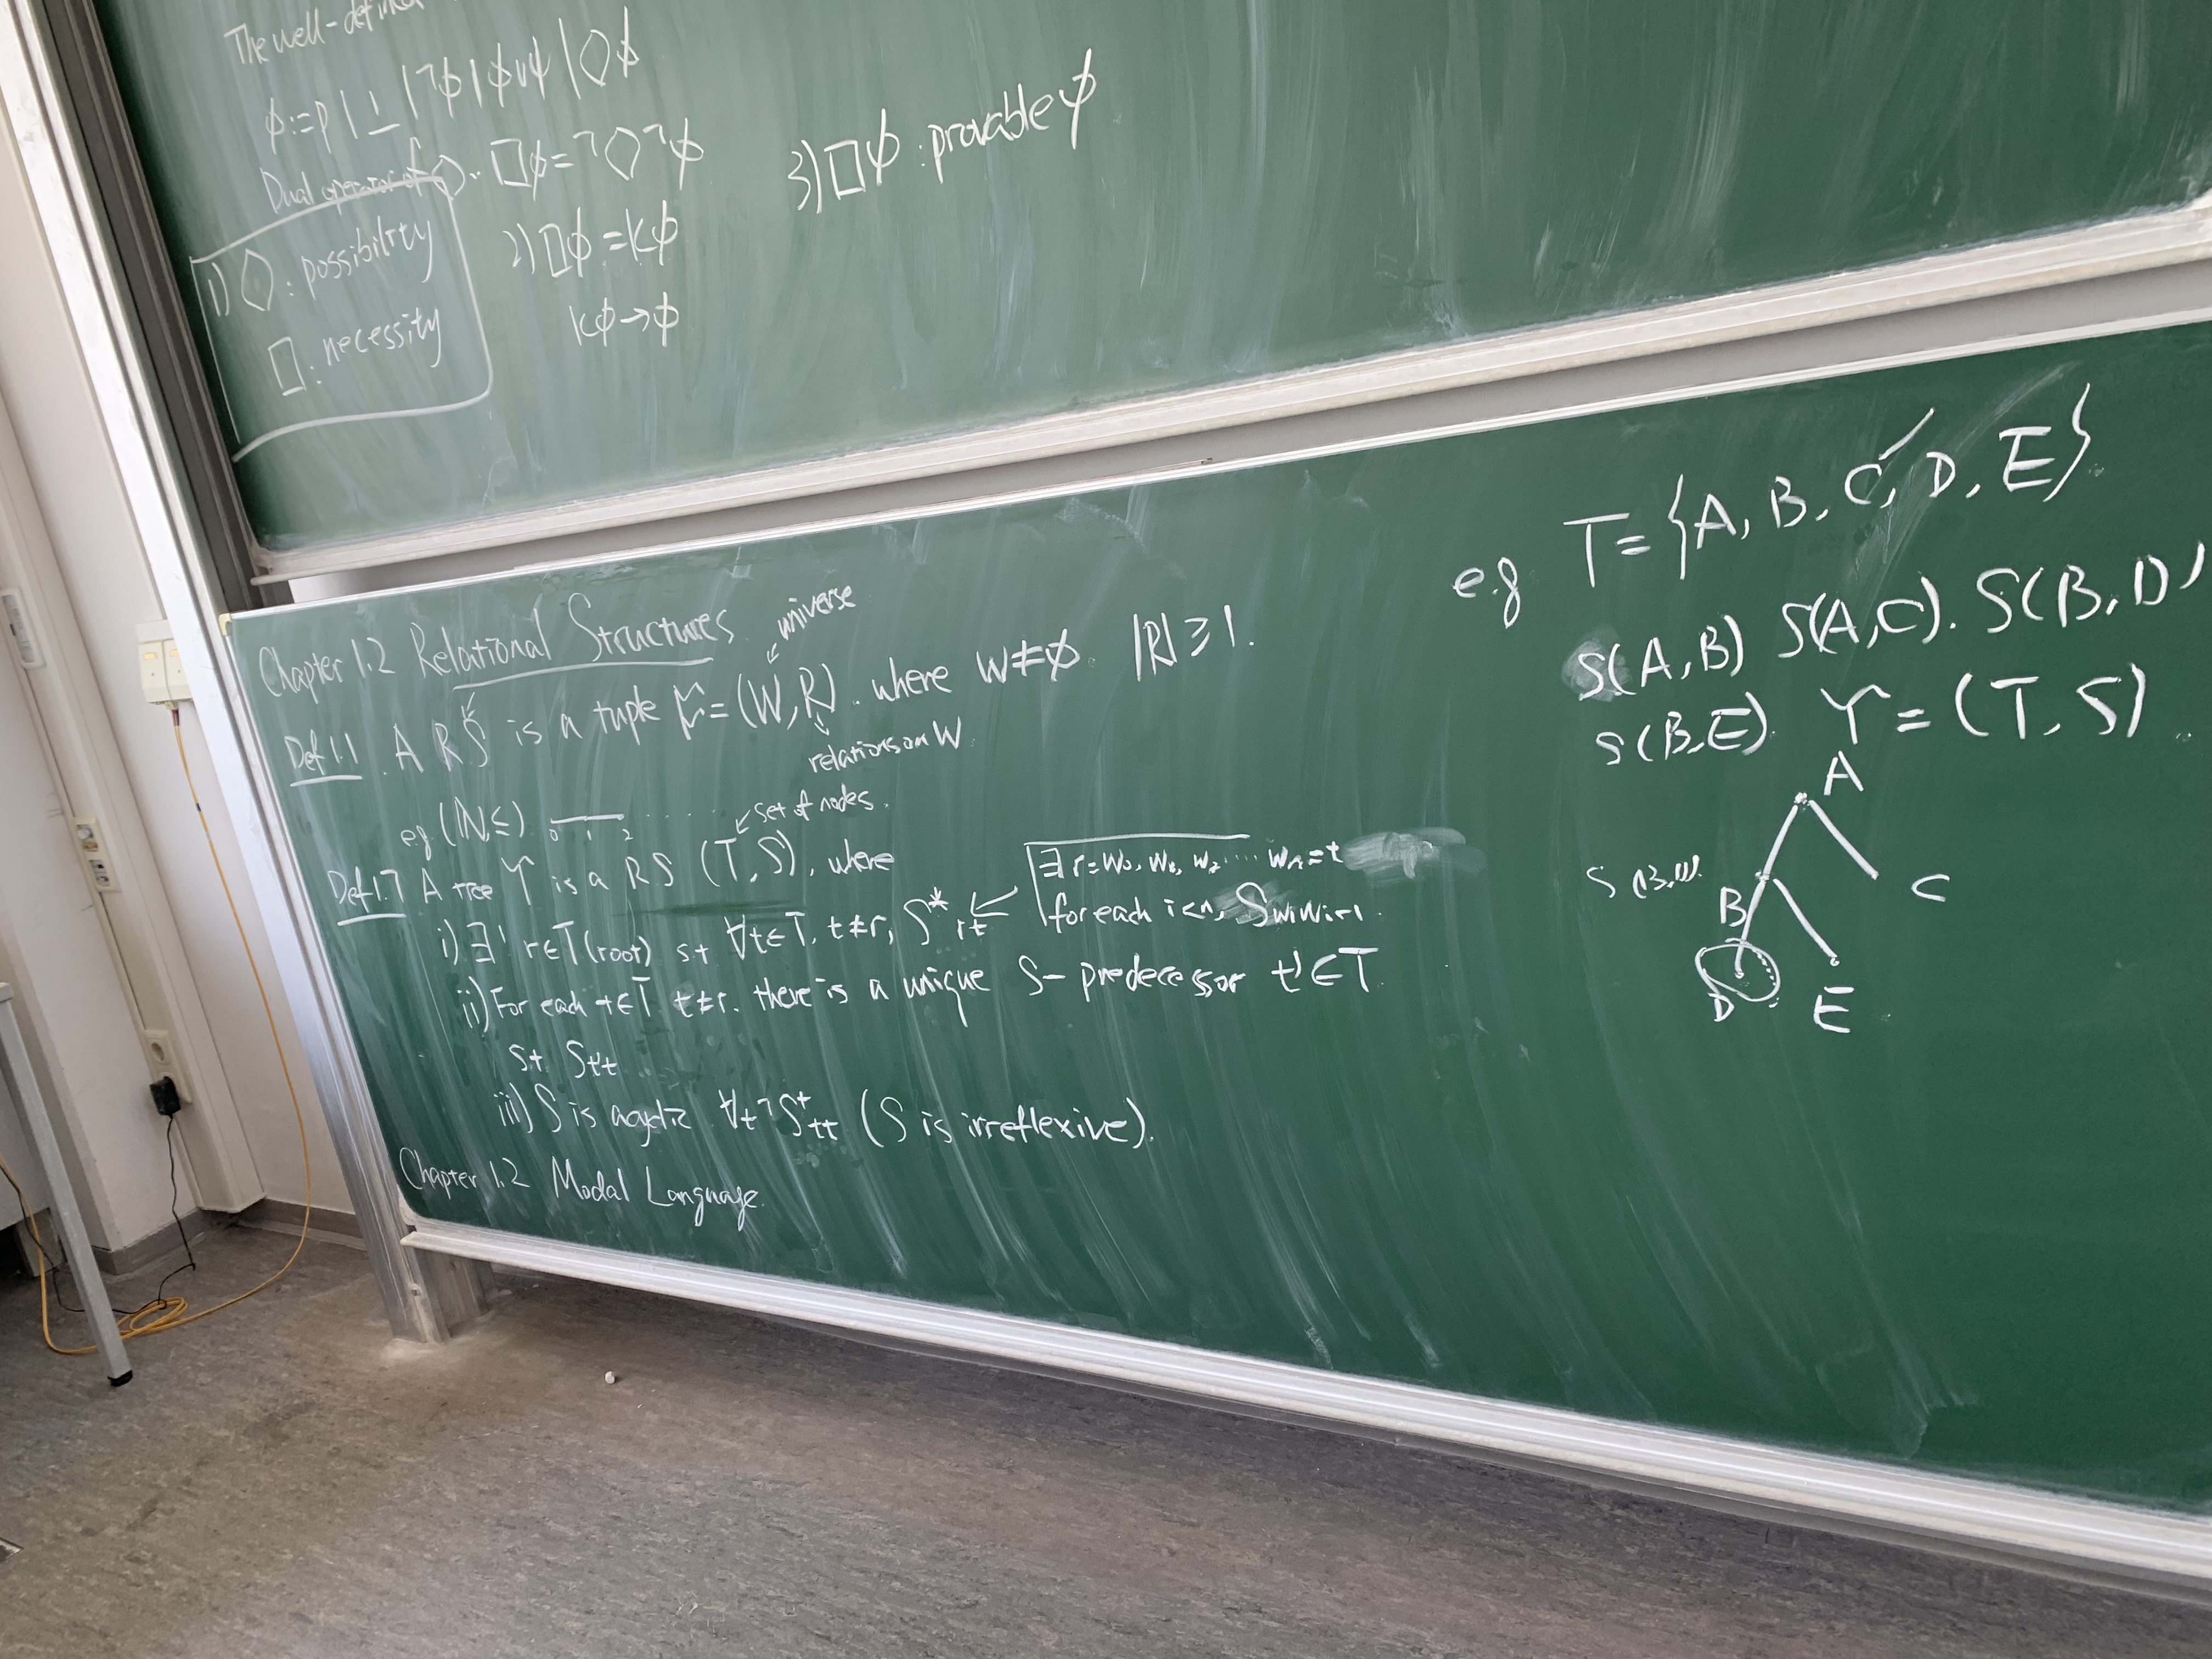 The well-defined
ϕ:=p|⊥|¬ϕ|ϕ∨ψ|◇ϕ
Dual operator of ◇. □ϕ=¬◇¬ϕ
1) ◇: possibility
□: necessity
2) □ϕ=Kϕ
Kϕ→ϕ
3) □ϕ: provable ϕ
Chapter 1.2 Relational Structures
universe
Def 1.1. A RS is a tuple F=(W,R). where W≠ϕ. |R|≥1.
relations on W
eg (N,≤). 0 1 2 ......
set of nodes.
Def 1.7 A tree Υ is a RS (T,S), where
i) ∃! r∈T(root) st ∀t∈T, t≠r, S*rt
∃ r=w₀, w₁, w₂ .... wₙ=t
for each i<n, Swiwi+1.
ii) For each t∈T t≠r. there is a unique S-predecessor t'∈T
st St't
iii) S is acyclic ∀t ¬S⁺tt (S is irreflexive).
Chapter 1.2 Modal Language.
e.g T={A, B, C, D, E}
S(A,B) S(A,C). S(B,D)
S(B,E). Υ=(T,S).
A
B
C
D
E